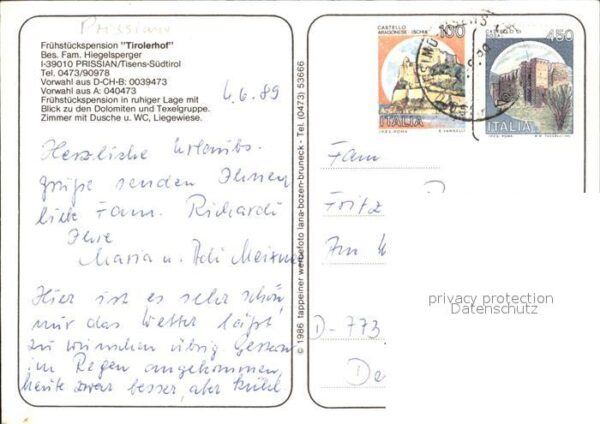 Prissian
Frühstückspension "Tirolerhof"
Bes. Fam. Hiegelsperger
I-39010 PRISSIAN/Tisens-Südtirol
Tel. 0473/90978
Vorwahl aus D-CH-B: 0039473
Vorwahl aus A: 040473
Frühstückspension in ruhiger Lage mit
Blick zu den Dolomiten und Texelgruppe.
Zimmer mit Dusche u. WC, Liegewiese.
4.6.89
Herzliche Urlaubs-
grüße senden Ihnen
liebe Fam. Richardi
Ihre
Maria u. Adi Meixner
Hier ist es sehr schön,
nur das Wetter läßt
zu wünschen übrig Gestern
im Regen angekommen,
heute zwar besser, aber kühl
© 1986 tappeiner werbefoto lana-bozen-bruneck - Tel. (0473) 53666
CASTELLO
ARAGONESE - ISCHIA
100
ITALIA
I.P.Z.S. ROMA
E. VANGELLI
CASTELLO DI
450
ITALIA
I.P.Z.S. ROMA
Fam
Fritz
Am
D-773
privacy protection
Datenschutz